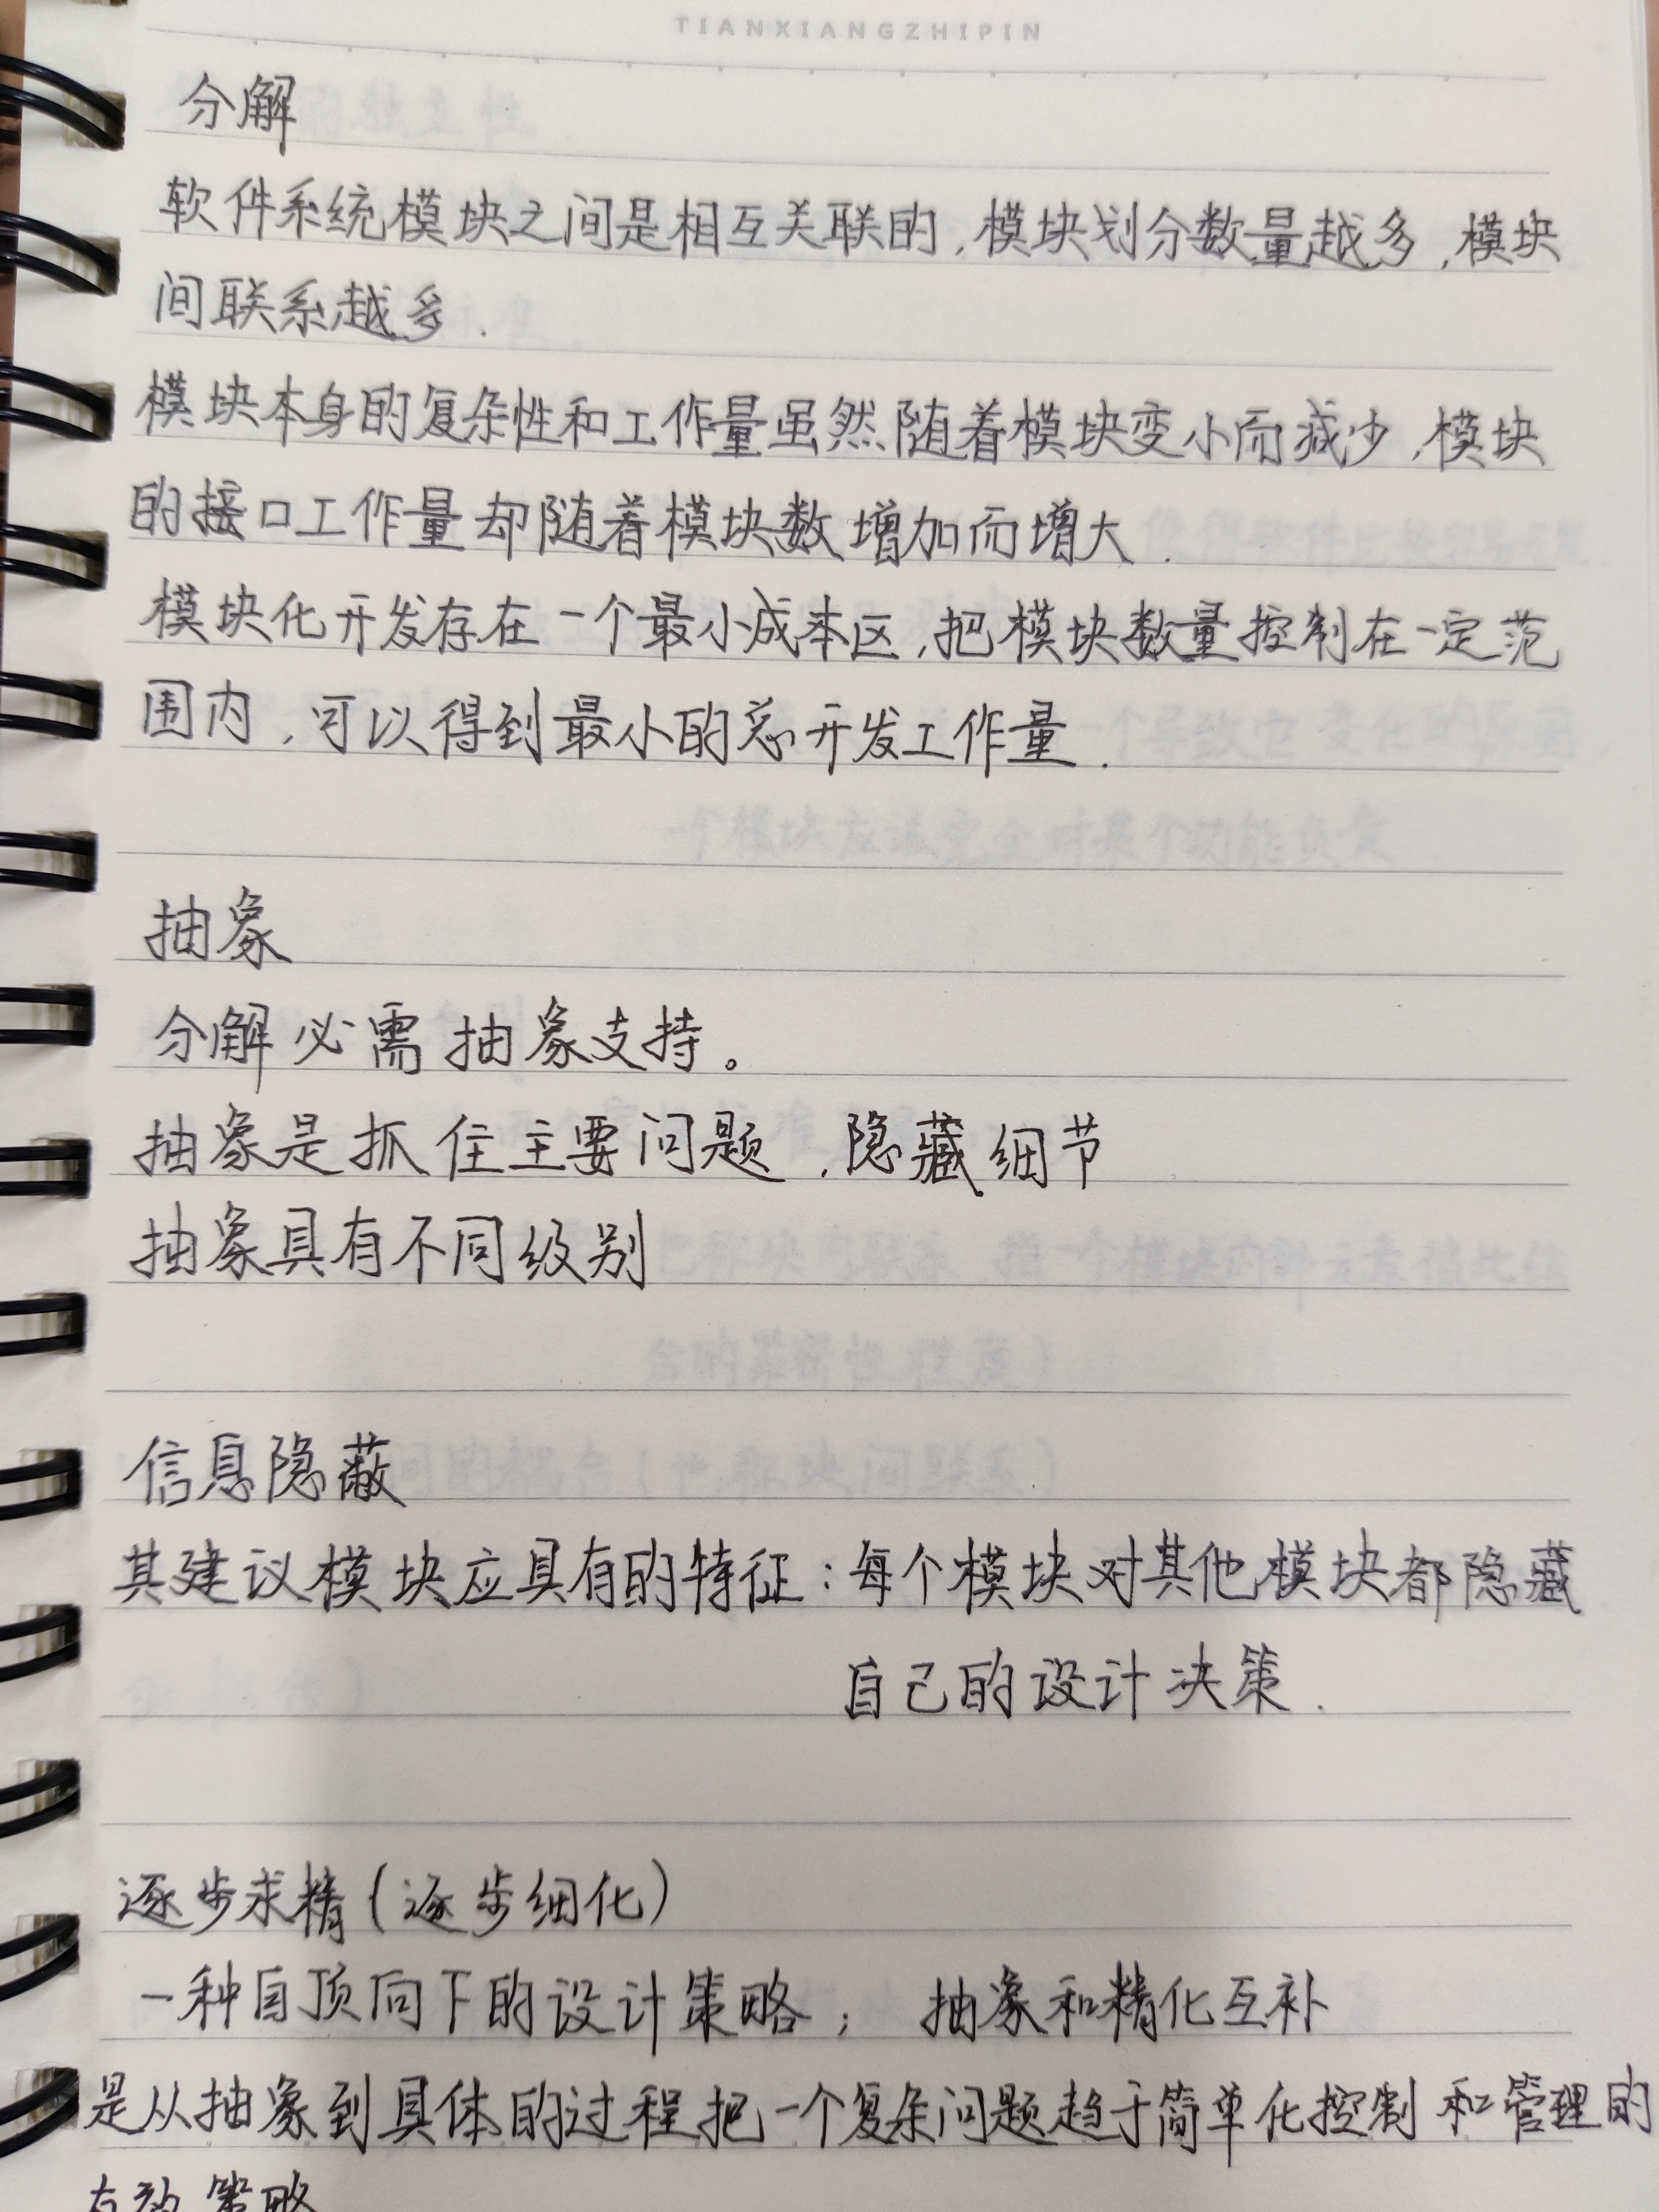 TIANXIANGZHIPIN
分解
软件系统模块之间是相互关联的,模块划分数量越多,模块
间联系越多.
模块本身的复杂性和工作量虽然随着模块变小而减少,模块
的接口工作量却随着模块数增加而增大.
模块化开发存在一个最小成本区,把模块数量控制在一定范
围内,可以得到最小的总开发工作量.
抽象
分解必需抽象支持。
抽象是抓住主要问题,隐藏细节
抽象具有不同级别
信息隐蔽
其建议模块应具有的特征:每个模块对其他模块都隐藏
自己的设计决策.
逐步求精(逐步细化)
一种自顶向下的设计策略; 抽象和精化互补
是从抽象到具体的过程把一个复杂问题趋于简单化控制和管理的
有效策略